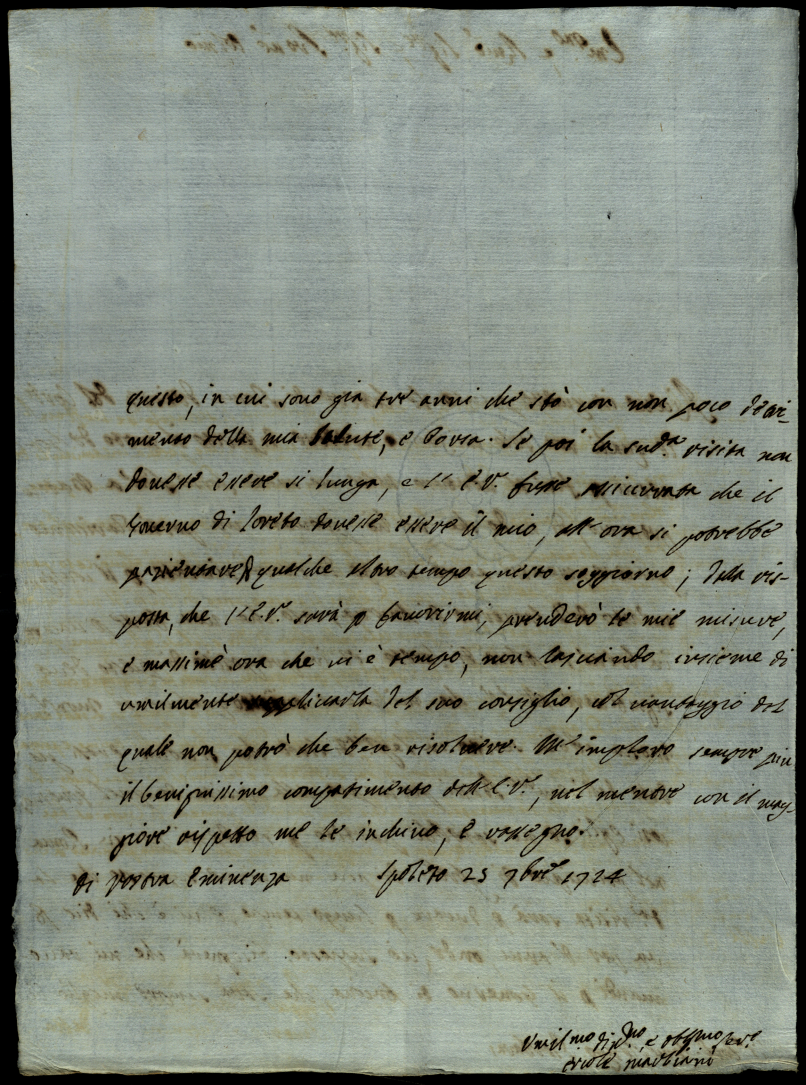 questo, in cui sono gia tre anni che stò con non poco detri-
mento della mia salute, e borsa. Se poi la sud.ª visita non
douesse essere si lunga, e l'E.V. fusse assicurata che il
Gouerno di Loreto douesse essere il mio, all'ora si potrebbe
pazientare qualche altro tempo questo soggiorno; dalla ris-
posta, che l'E.V. sarà p fauorirmi, prenderò le mie misure,
e massimè ora che ui è tempo, non lasciando insieme di
umilmente supplicarla del suo consiglio, col uantaggio del
quale non potrò che ben risoluere. M'imploro sempre più
il benignissimo compatimento dell'E.V., nel mentre con il mag-
giore rispetto me le inchino, e rassegno.
di Vostra Eminenza Spoleto 23 7bre 1724
Umil.mo di.mo e obblmo ser.e